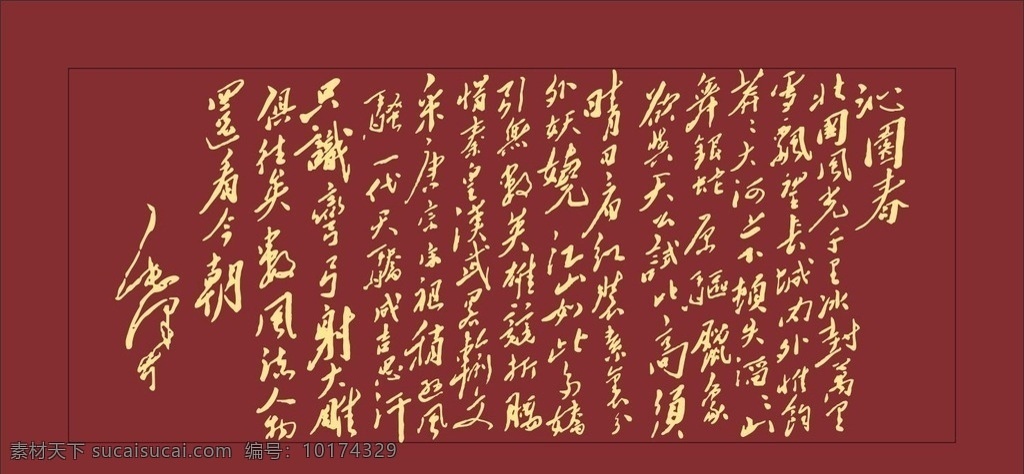 沁園春
北國風光千里冰封萬里
雪飄望長城內外惟餘
莽〻大河上下頓失滔〻山
舞銀蛇原驅臘象
欲與天公試比高須
晴日看紅裝素裹分
外妖嬈江山如此多嬌
引無數英雄競折腰
惜秦皇漢武略輸文
采唐宗宋祖稍遜風
騷一代天驕成吉思汗
只識彎弓射大雕
俱往矣數風流人物
還看今朝
毛澤東
素材天下 sucaisucai.com 编号：10174329